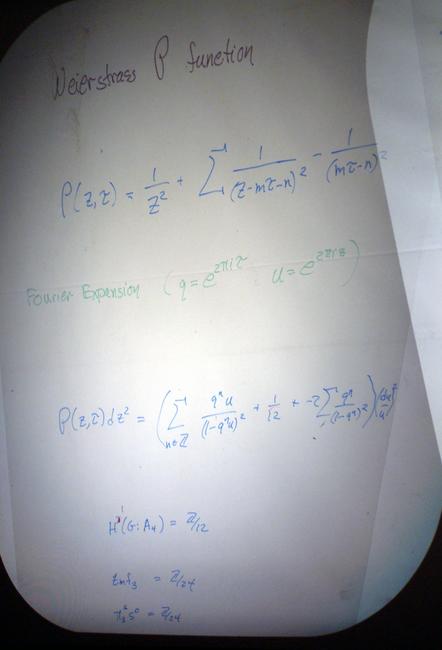 Weierstrass P function
P(z,τ) = 1/z² + Σ 1/(z-mτ-n)² - 1/(mτ-n)²
Fourier Expansion (q=e^{2πiτ} u=e^{2πiz})
P(z,τ)dz² = (Σ_{n∈ℤ} qⁿu/(1-qⁿu)² + 1/12 + -2Σ qⁿ/(1-qⁿ)²)(du/u)²
(G:A₄) = ℤ/12
= ℤ/24
S⁰ = ℤ/24